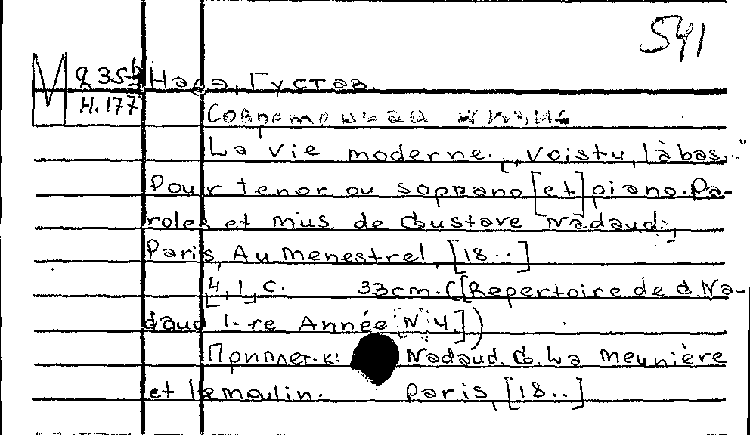 541
М 235
Н.177
Надо, Густав.
Современная жизнь
La vie moderne. "Voistu, làbas."
Pour tenor ou soprano [et] piano. Pa-
roles et mus de Gustave Nadaud.,
Paris, Au Menestrel, [18..]
[4], 1, c. 33cm. ([Repertoire de G Na-
daud 1-re Année N 4.])
Приплет. к: Nadaud. G. La meunière
et le moulin. Paris, [18..]